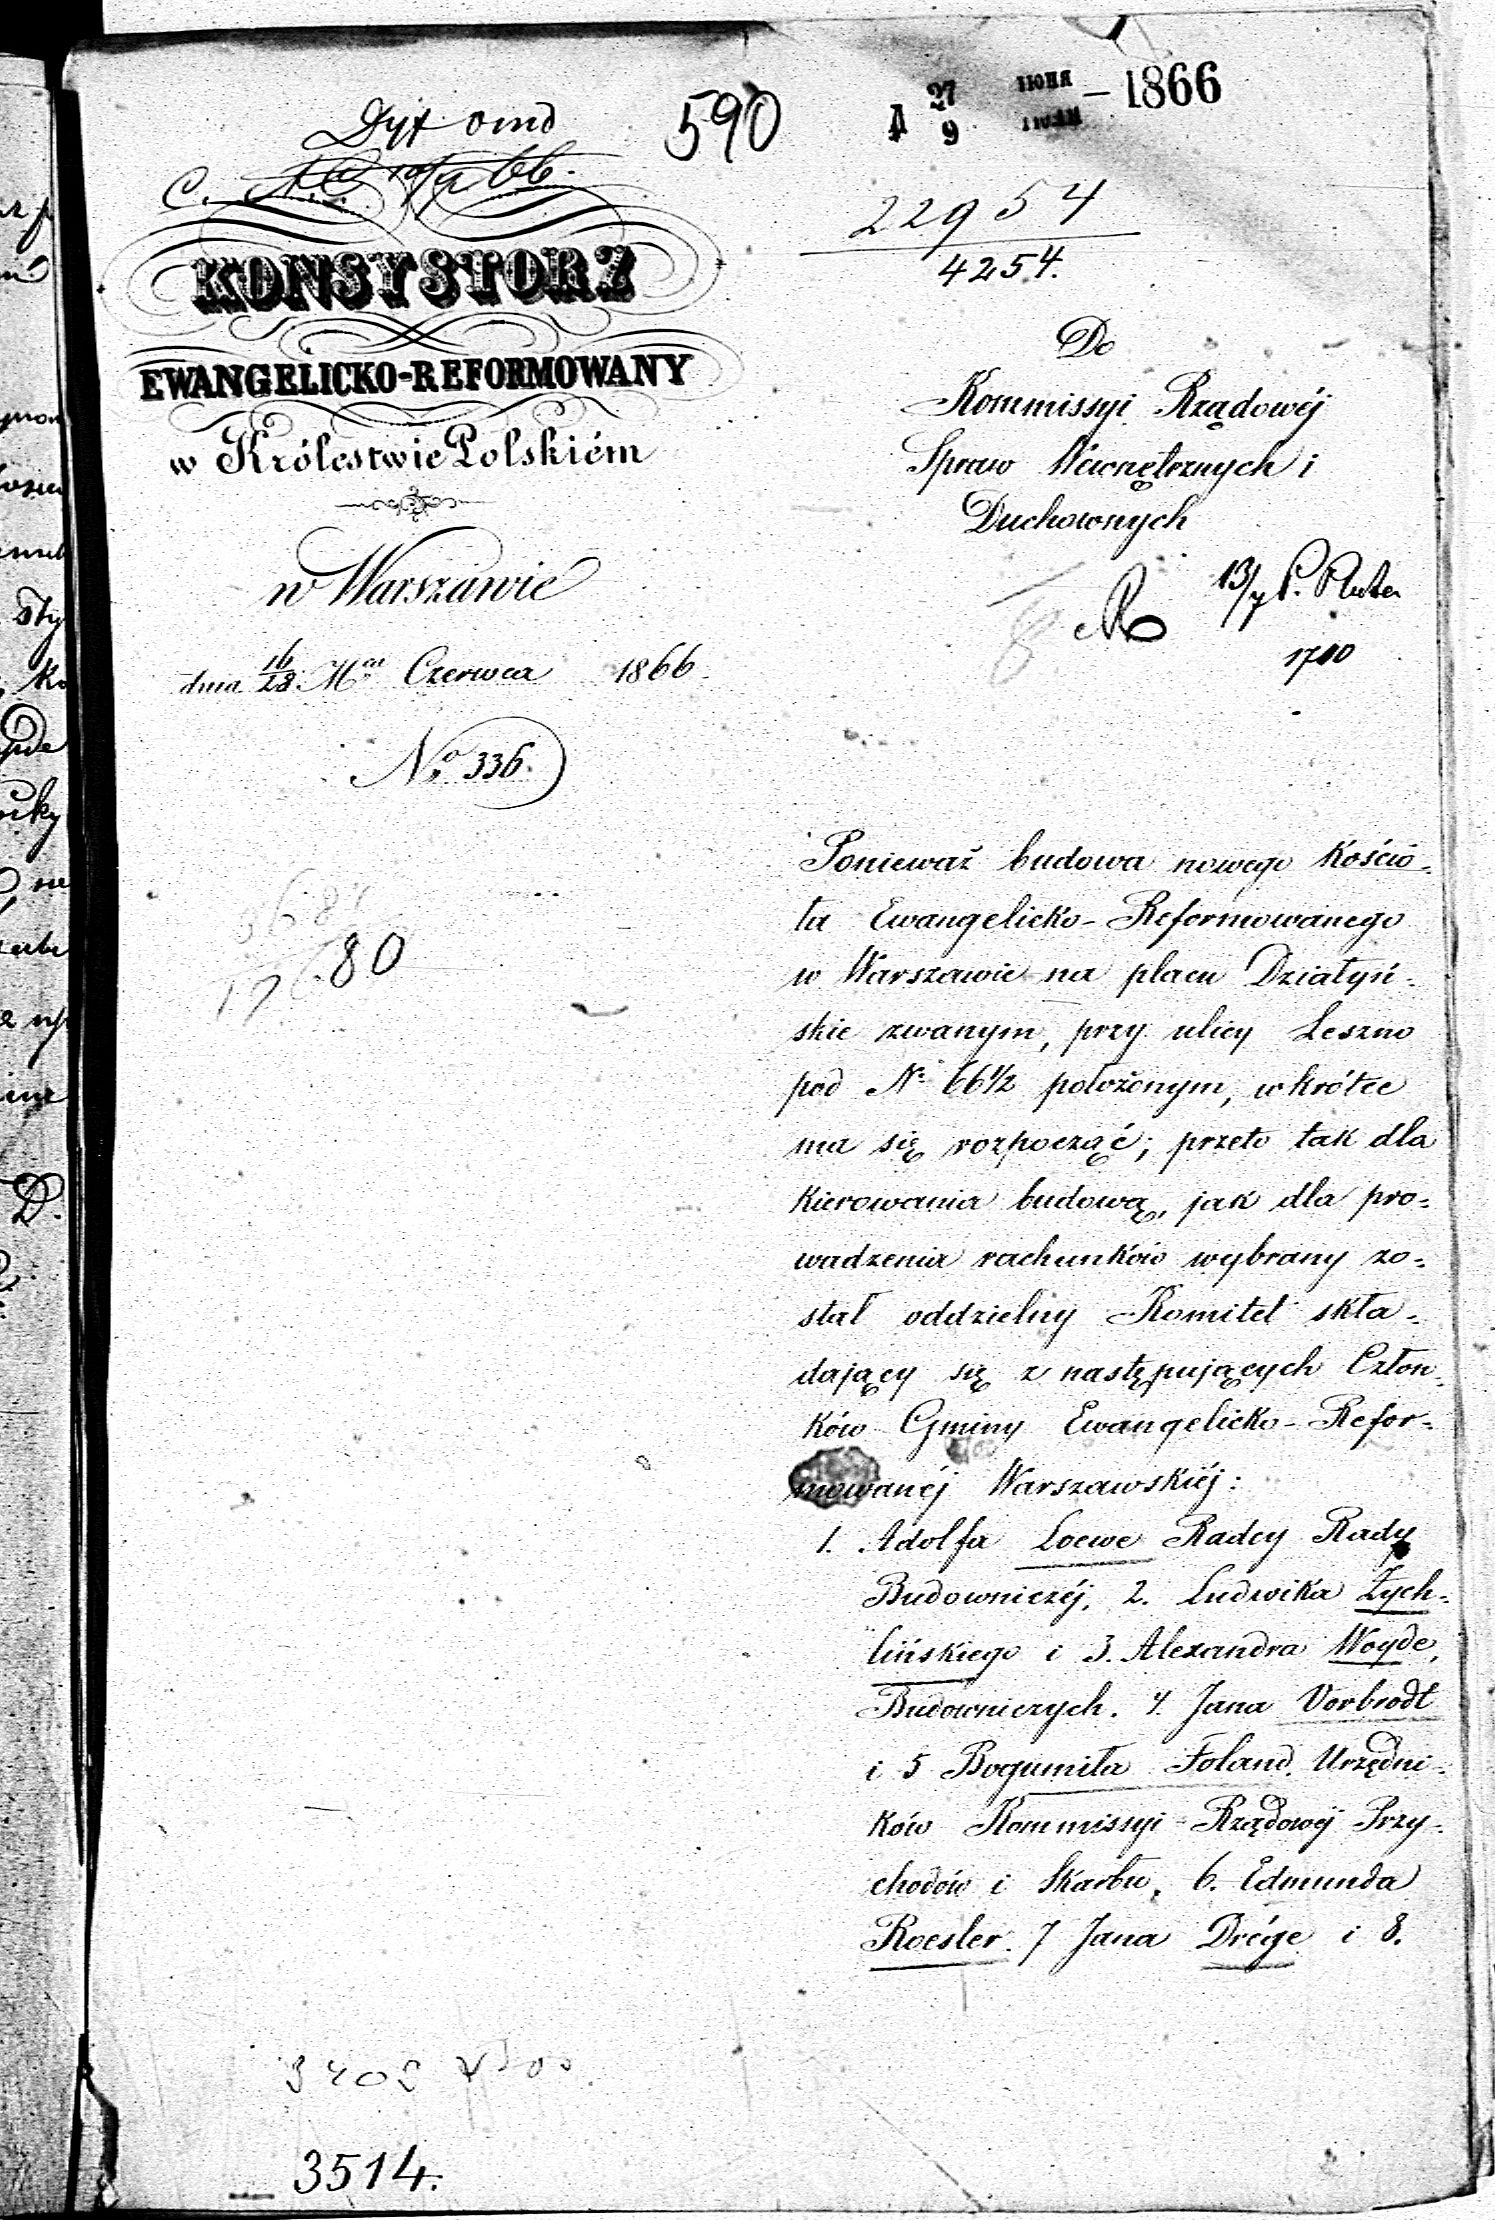 590
27 ІЮНЯ
9 ІЮЛЯ
— 1866
22954
4254.
KONSYSTORZ
EWANGELICKO-REFORMOWANY
w Królestwie Polskiém
w Warszawie
dnia 16/28 Mca Czerwca 1866.
No 336.
Do
Kommissyi Rządowéj
Spraw Wewnętrznych i
Duchownych
13/7
1710
80
Ponieważ budowa nowego Kościo-
ła Ewangelicko-Reformowanego
w Warszawie na placu Działyń-
skie zwanym, przy ulicy Leszno
pod No 66 1/2 położonym, wkrótce
ma się rozpocząć; przeto tak dla
kierowania budową, jak dla pro-
wadzenia rachunków wybrany zo-
stał oddzielny Komitet skła-
dający się z następujących Człon-
ków Gminy Ewangelicko-Refor-
mowanéj Warszawskiéj:
1. Adolfa Loewe Radcy Rady
Budowniczéj, 2. Ludwika Żych-
lińskiego i 3. Alexandra Woyde,
Budowniczych. 4. Jana Vorbrodt
i 5 Bogumiła Foland. Urzędni-
ków Kommissyi Rządowéj Przy-
chodów i Skarbu, 6. Edmunda
Roesler. 7 Jana Drége i 8.
3514.